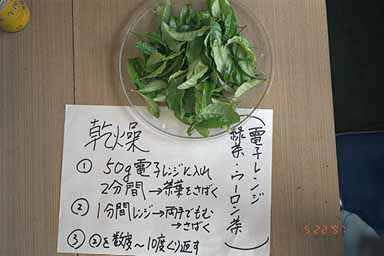 乾燥
(電子レンジ
緑茶・ウーロン茶)
① 50g電子レンジに入れ
2分間→茶葉をさばく
② 1分間レンジ→両手でもむ
→さばく
③ ②を数度～10度くり返す